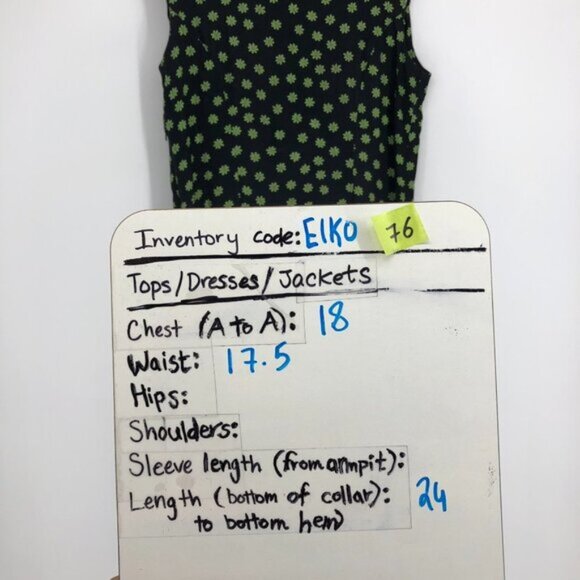 Inventory code: EIKO 76
Tops/Dresses/Jackets
Chest (A to A): 18
Waist: 17.5
Hips:
Shoulders:
Sleeve length (from armpit):
Length (bottom of collar): 24
to bottom hem)